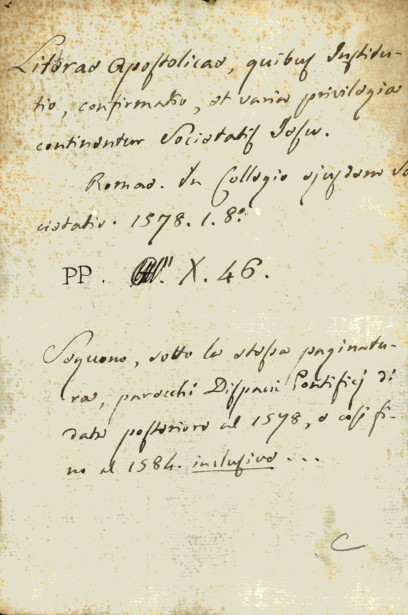 Literae Apostolicae, quibus Institu-
tio, confirmatio, et varia privilegia
continentur Societatis Jesu.
Romae. In Collegio ejusdem So
cietatis. 1578. 1. 8.º
PP. X. 46.
Seguono, sotto la stessa paginatu-
ra, parecchi Dispacci Pontificj di
data posteriore al 1578, e così fi-
no al 1584. inclusive ...
C